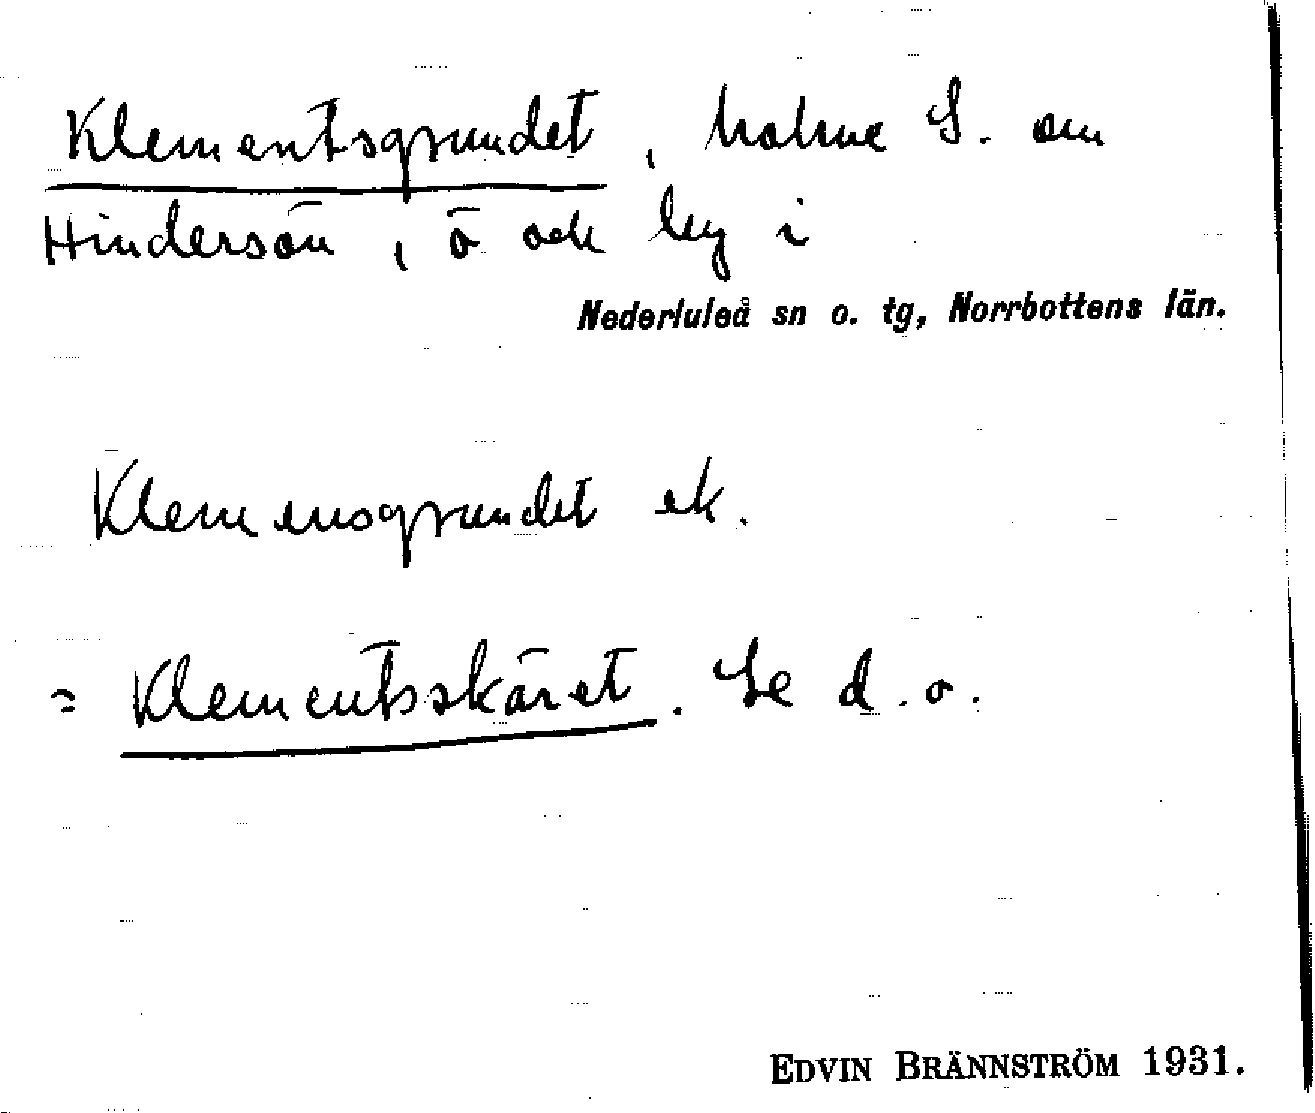 Klementsgrundet, holme S. om
Hindersön, ö och by i
Nederluleå sn o. tg, Norrbottens län.
Klemensgrundet ek.
= Klementsskäret. Se d. o.
EDVIN BRÄNNSTRÖM 1931.